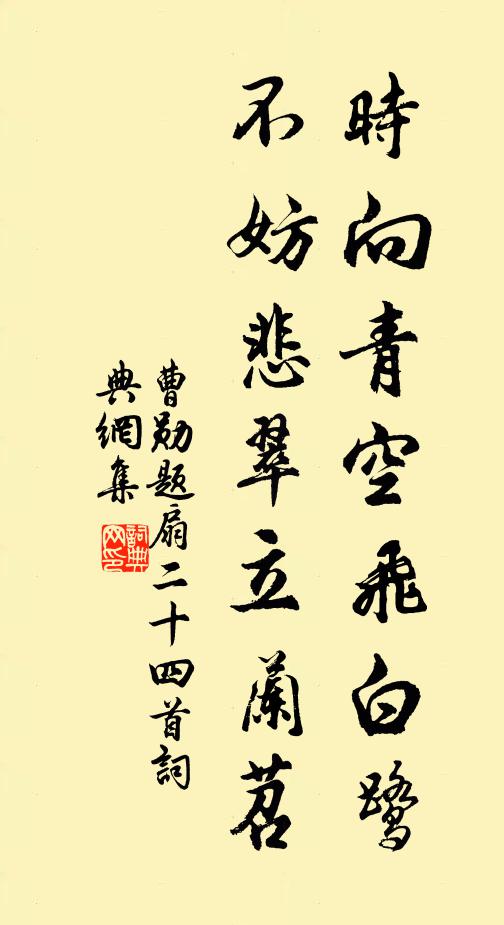 時向青空飛白鷺
不妨悲翠立蘭苕
曹勛題扇二十四首詞
典網集
詞典
网印